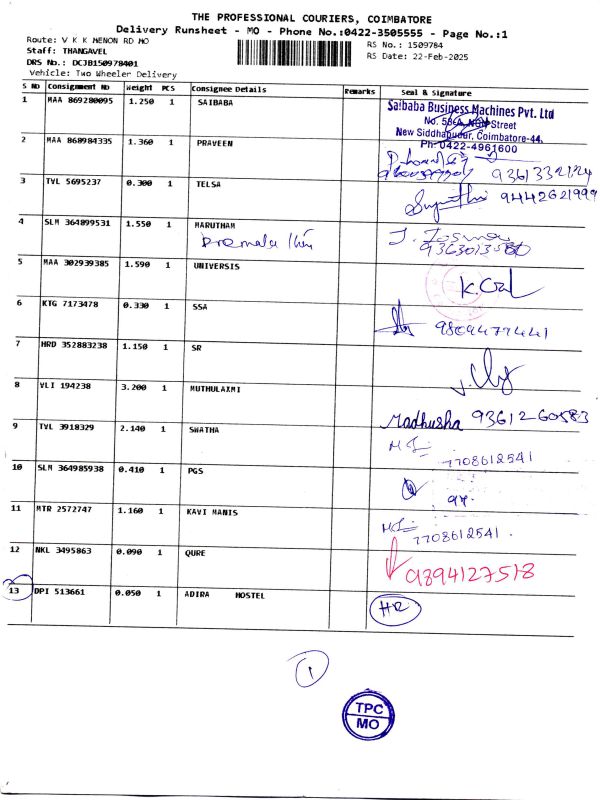 THE PROFESSIONAL COURIERS, COIMBATORE
Delivery Runsheet - MO - Phone No.:0422-3505555 - Page No.:1
Route: V K K MENON RD MO
Staff: THANGAVEL
DRS No.: DCJB150978401
Vehicle: Two Wheeler Delivery
RS No.: 1509784
RS Date: 22-Feb-2025
S NO Consignment NO Weight PCS Consignee Details Remarks Seal & Signature
1 MAA 869280095 1.250 1 SAIBABA
Saibaba Business Machines Pvt. Ltd
No. Street
New Siddhapudur, Coimbatore-44.
Ph: 0422-4961600
2 MAA 868984335 1.360 1 PRAVEEN
3 TVL 5695237 0.300 1 TELSA 9442621999
4 SLM 364899531 1.550 1 MARUTHAM
5 MAA 302939385 1.590 1 UNIVERSIS
6 KTG 7173478 0.330 1 SSA
7 HRD 352883238 1.150 1 SR
8 VLI 194238 3.200 1 MUTHULAXMI Madhusha 9361260583
9 TVL 3918329 2.140 1 SWATHA 7708612541
10 SLM 364985938 0.410 1 PGS
11 MTR 2572747 1.160 1 KAVI MANIS 7708612541
12 NKL 3495863 0.090 1 QURE 9894127518
13 DPI 513661 0.050 1 ADIRA HOSTEL HR
1
TPC
MO